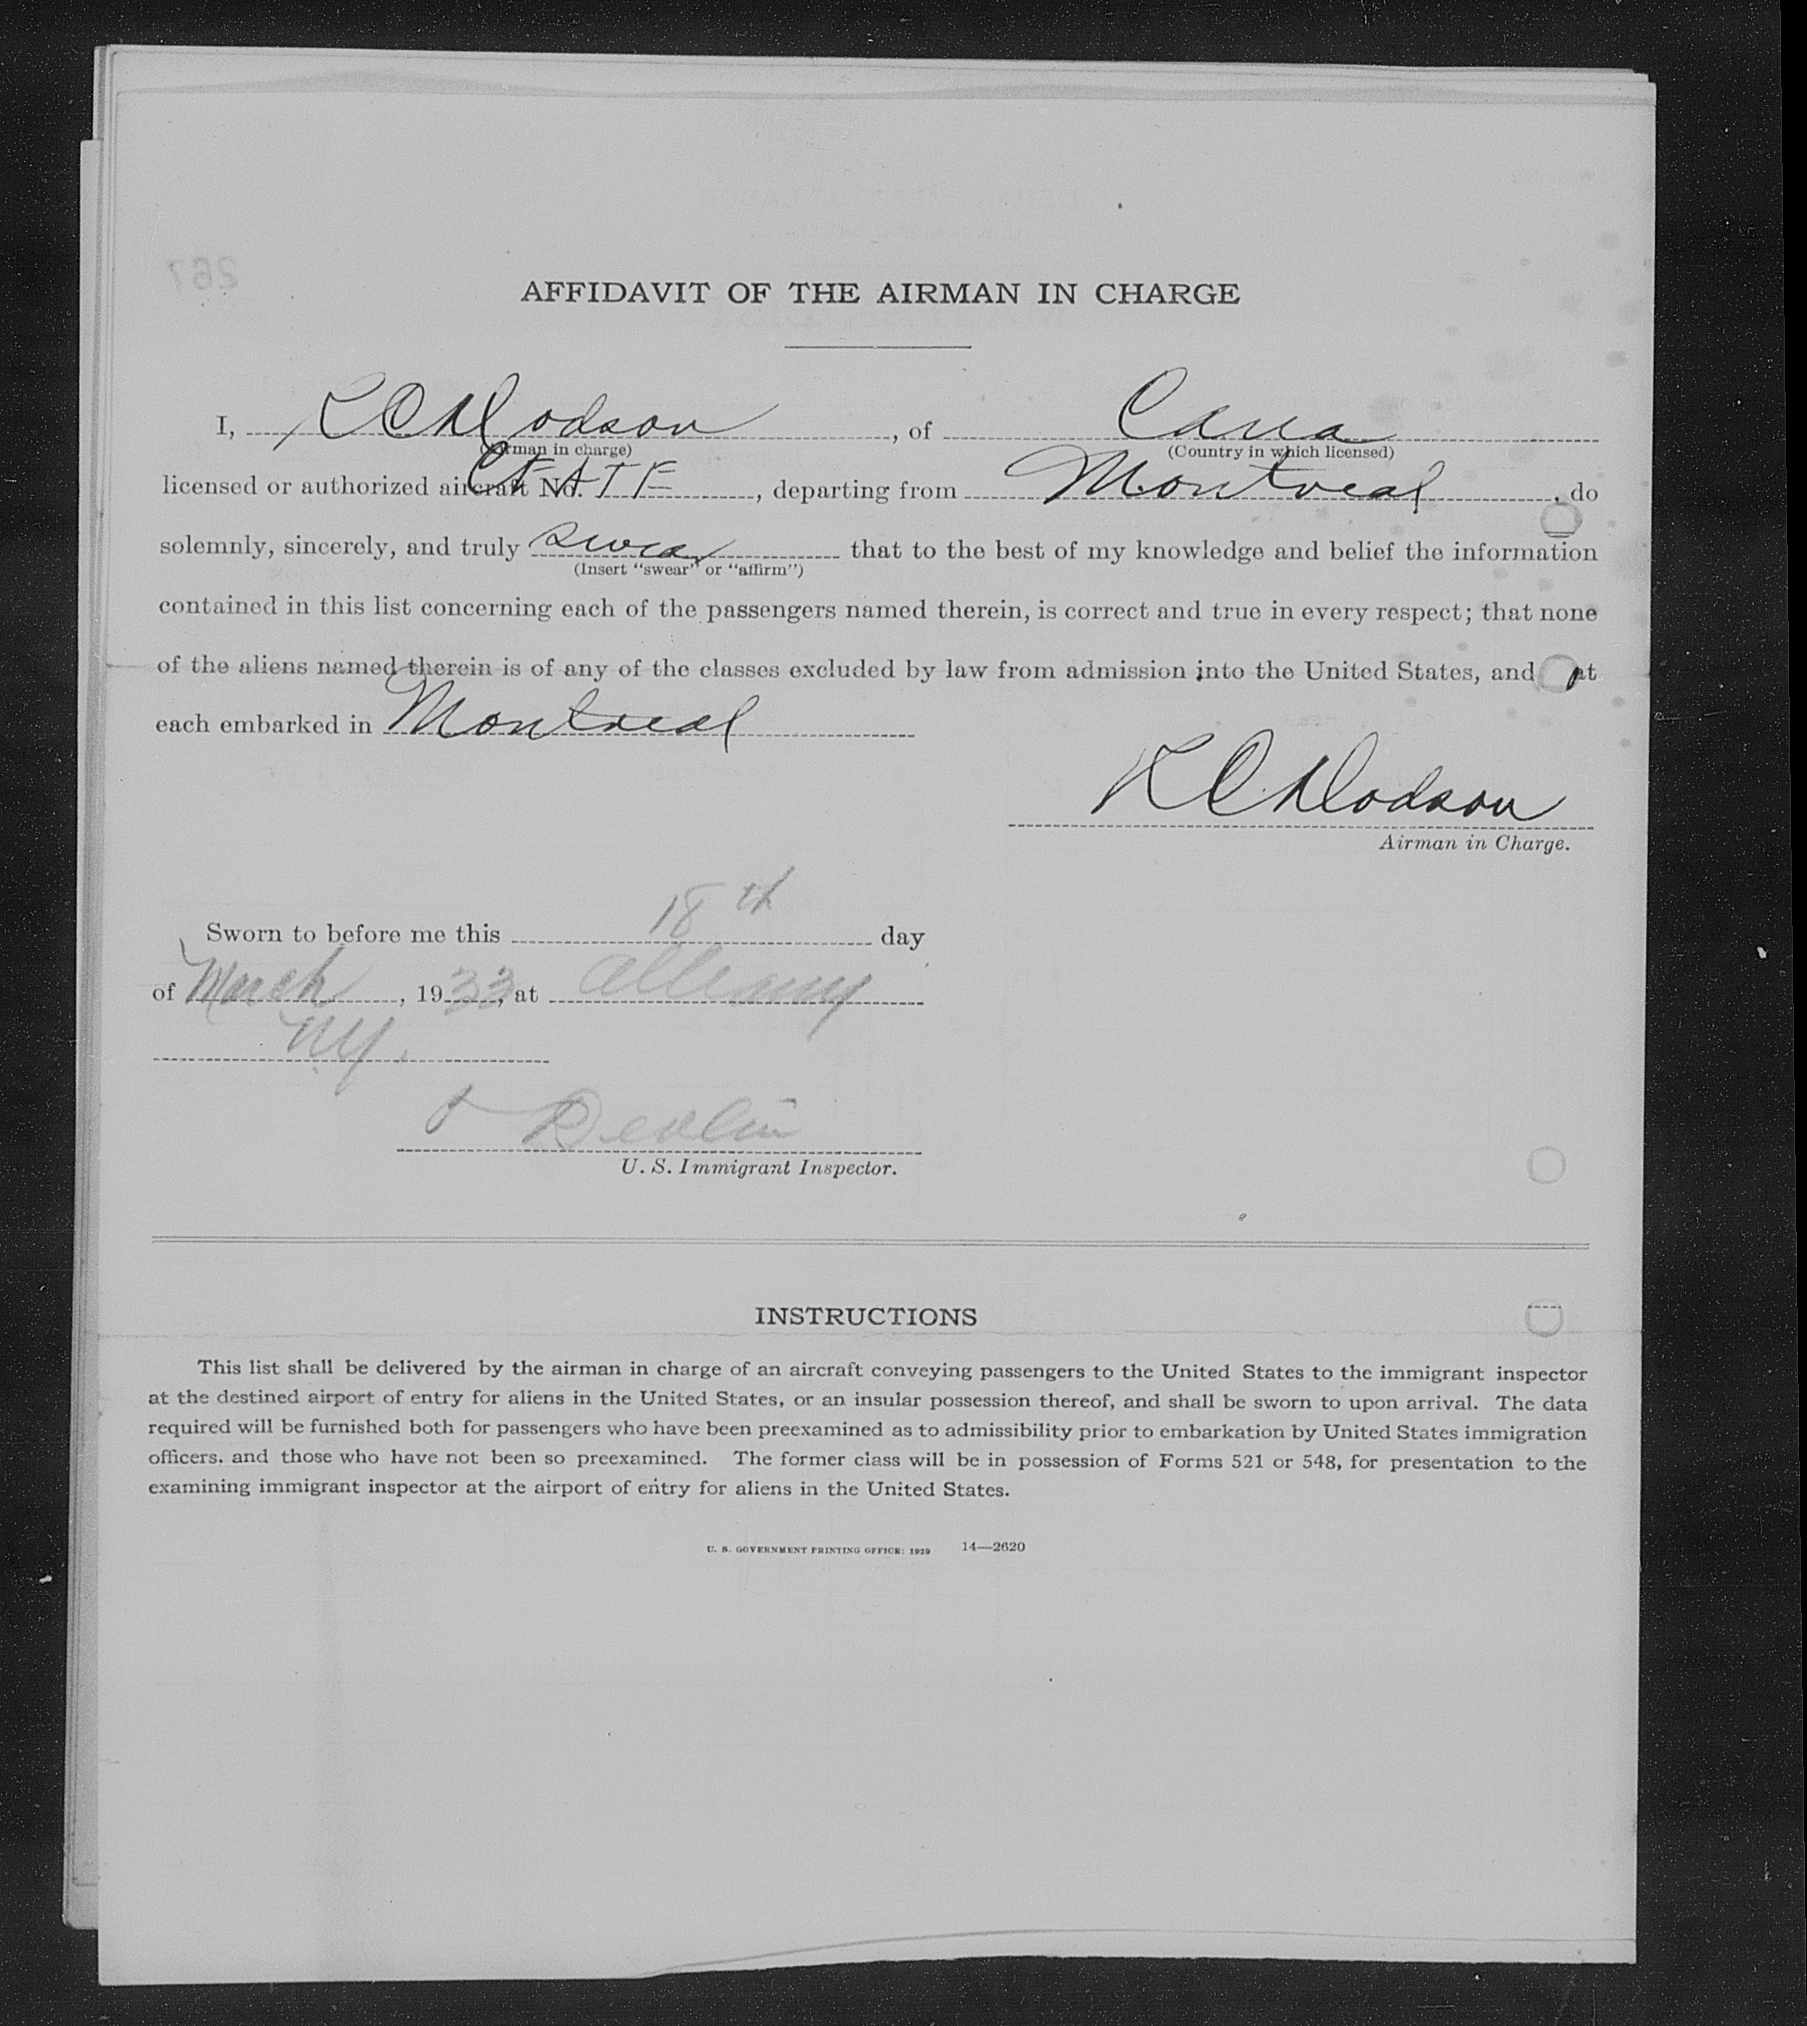 AFFIDAVIT OF THE AIRMAN IN CHARGE
I, R C Dodson, of Cana
(Airman in charge) (Country in which licensed)
licensed or authorized aircraft No. CF ATF, departing from Montreal, do
solemnly, sincerely, and truly swear that to the best of my knowledge and belief the information
(Insert "swear" or "affirm")
contained in this list concerning each of the passengers named therein, is correct and true in every respect; that none
of the aliens named therein is of any of the classes excluded by law from admission into the United States, and at
each embarked in Montreal
R C Dodson
Airman in Charge.
Sworn to before me this 18th day
of March, 1933, at Albany
NY.
Devlin
U. S. Immigrant Inspector.
INSTRUCTIONS
This list shall be delivered by the airman in charge of an aircraft conveying passengers to the United States to the immigrant inspector
at the destined airport of entry for aliens in the United States, or an insular possession thereof, and shall be sworn to upon arrival. The data
required will be furnished both for passengers who have been preexamined as to admissibility prior to embarkation by United States immigration
officers. and those who have not been so preexamined. The former class will be in possession of Forms 521 or 548, for presentation to the
examining immigrant inspector at the airport of entry for aliens in the United States.
U. S. GOVERNMENT PRINTING OFFICE: 1929 14—2620